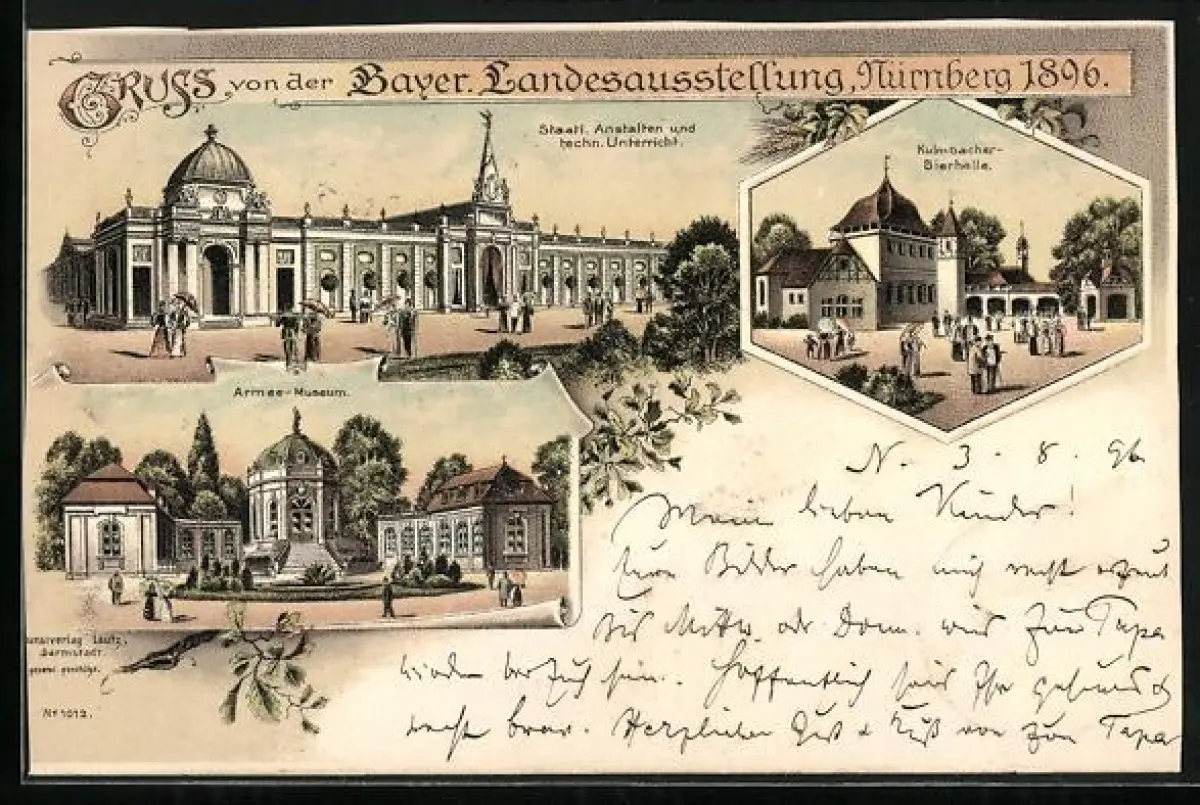 Gruss von der Bayer. Landesausstellung, Nürnberg 1896.
Staatl. Anstalten und
techn. Unterricht.
Kulmbacher-
Bierhalle.
Armee-Museum.
N. 3. 8. 96
Meine lieben Kinder!
Eure Bilder haben mich recht erfreut
bis Mittw. od. Donn. wird Euer Papa
wieder bei Euch sein. Hoffentlich seid Ihr gesund &
recht brav. Herzlichen Gruß & Kuß von Eurem Papa
Kunstverlag Lautz,
Darmstadt.
gesetzl. geschützt.
Nr 1012.